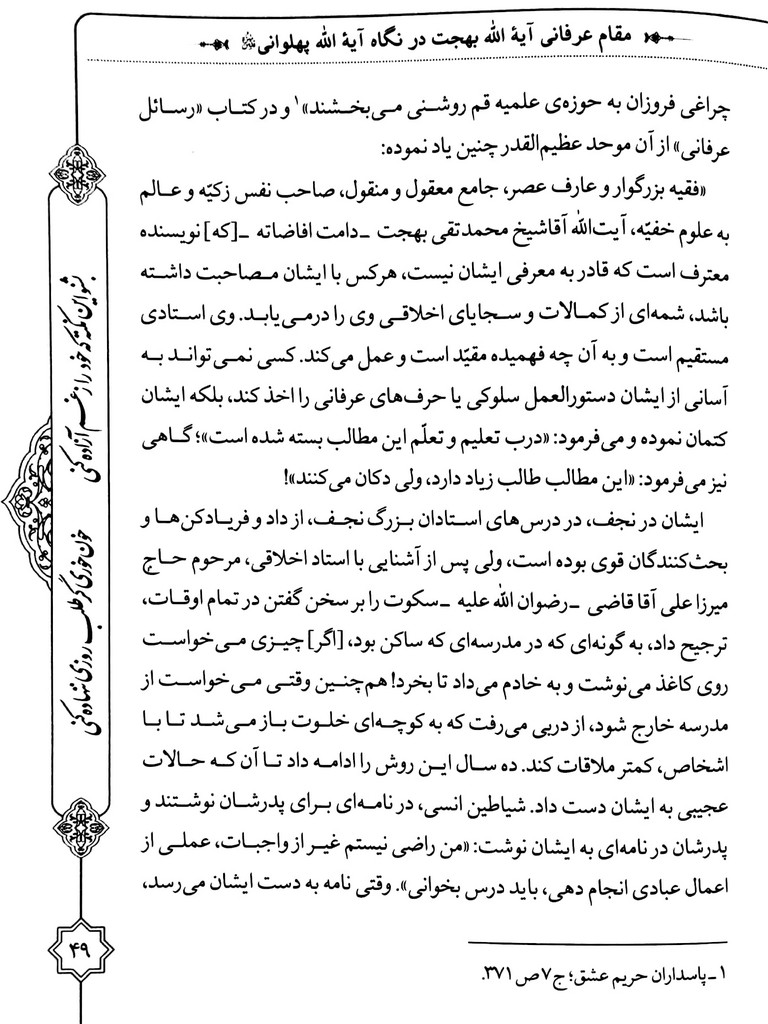 مقام عرفانی آیة الله بهجت در نگاه آیة الله پهلوانی
چراغی فروزان به حوزه‌ی علمیه قم روشنی می‌بخشند»۱ و در کتاب «رسائل
عرفانی» از آن موحد عظیم‌القدر چنین یاد نموده:
«فقیه بزرگوار و عارف عصر، جامع معقول و منقول، صاحب نفس زکیّه و عالم
به علوم خفیّه، آیت‌الله آقاشیخ محمدتقی بهجت ـ دامت افاضاته ـ [که] نویسنده
معترف است که قادر به معرفی ایشان نیست، هرکس با ایشان مصاحبت داشته
باشد، شمه‌ای از کمالات و سجایای اخلاقی وی را درمی‌یابد. وی استادی
مستقیم است و به آن چه فهمیده مقیّد است و عمل می‌کند. کسی نمی‌تواند به
آسانی از ایشان دستورالعمل سلوکی یا حرف‌های عرفانی را اخذ کند، بلکه ایشان
کتمان نموده و می‌فرمود: «درب تعلیم و تعلّم این مطالب بسته شده است»؛ گاهی
نیز می‌فرمود: «این مطالب طالب زیاد دارد، ولی دکان می‌کنند»!
ایشان در نجف، در درس‌های استادان بزرگ نجف، از داد و فریادکن‌ها و
بحث‌کنندگان قوی بوده است، ولی پس از آشنایی با استاد اخلاقی، مرحوم حاج
میرزا علی آقا قاضی ـ رضوان الله علیه ـ سکوت را بر سخن گفتن در تمام اوقات،
ترجیح داد، به گونه‌ای که در مدرسه‌ای که ساکن بود، [اگر] چیزی می‌خواست
روی کاغذ می‌نوشت و به خادم می‌داد تا بخرد! هم‌چنین وقتی می‌خواست از
مدرسه خارج شود، از دربی می‌رفت که به کوچه‌ای خلوت باز می‌شد تا با
اشخاص، کمتر ملاقات کند. ده سال این روش را ادامه داد تا آن که حالات
عجیبی به ایشان دست داد. شیاطین انسی، در نامه‌ای برای پدرشان نوشتند و
پدرشان در نامه‌ای به ایشان نوشت: «من راضی نیستم غیر از واجبات، عملی از
اعمال عبادی انجام دهی، باید درس بخوانی». وقتی نامه به دست ایشان می‌رسد،
۱ـ پاسداران حریم عشق؛ ج۷ ص ۳۷۱.
بشنو این نکته که خود را ز غم آزاده کنی
خون خوری گر طلب روزی ننهاده کنی
۴۹